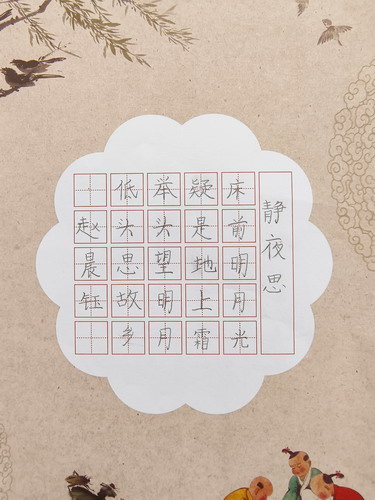 静夜思
床前明月光
疑是地上霜
举头望明月
低头思故乡
赵晨钰